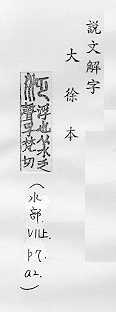 說文解字
大徐本
泛 浮也从水乏
聲孚梵切
(水部.
VII上.
p7.
a2.)